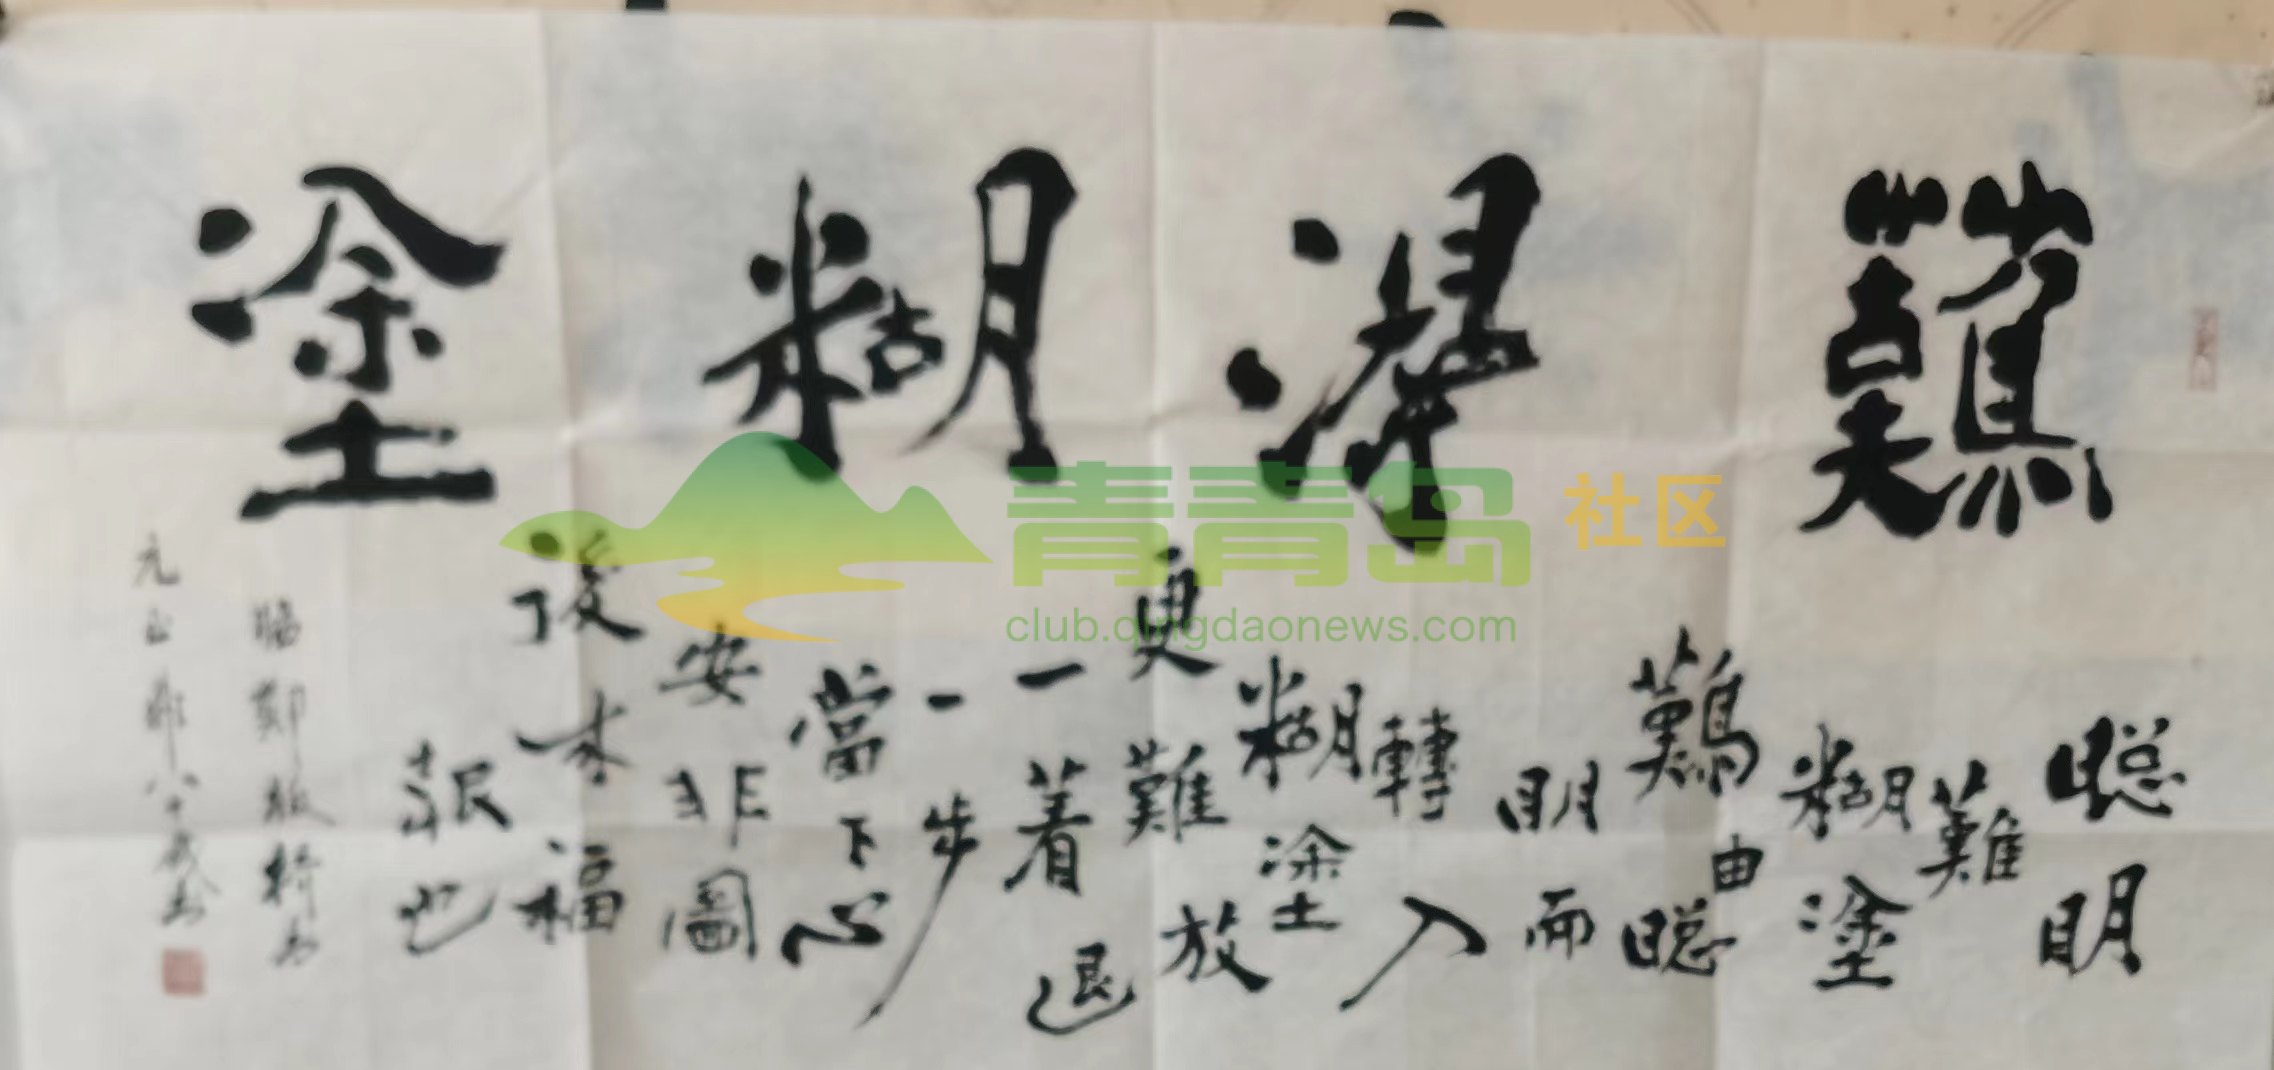 難得糊塗
聪明
難
糊塗
難由
聪明而
轉入
糊塗
更難放
一着退
一步
當下心
安非圖
後来福
報也
临鄭板橋书
八十歲书
青青岛社区
club.qingdaonews.com